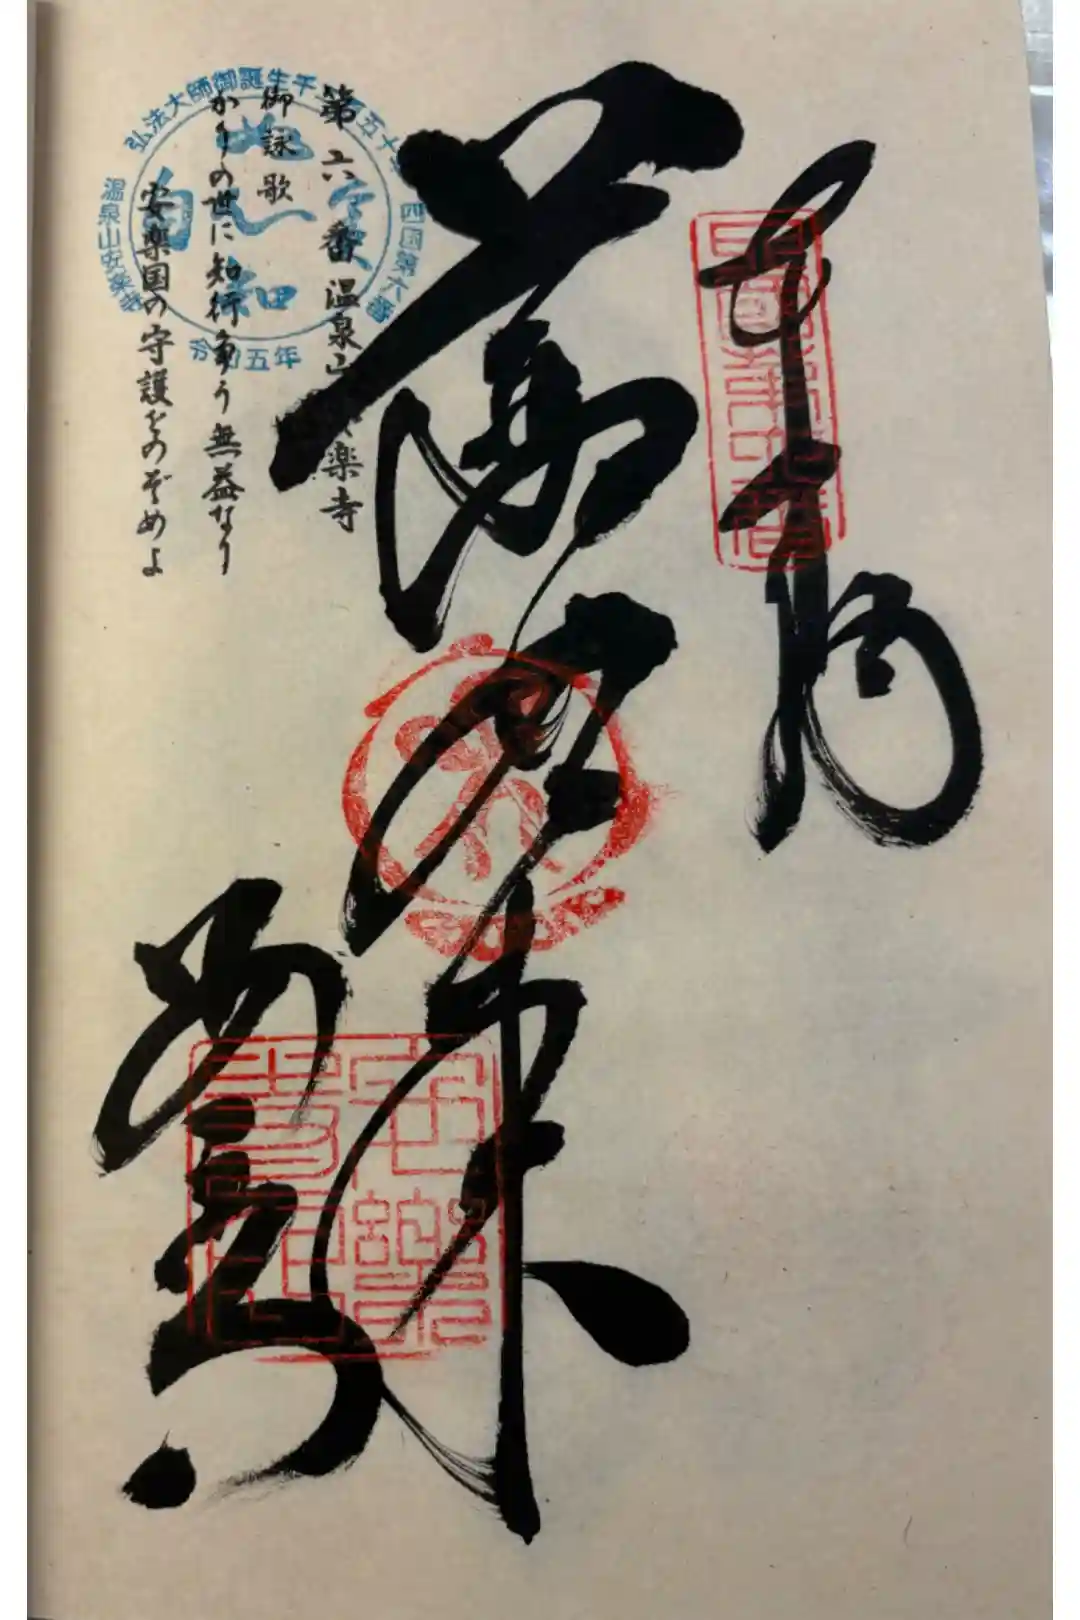 奉納
四國第六番
薬師如来
安楽寺
安樂寺印
第六番 温泉山安楽寺
御詠歌
かりの世に知行争う無益なり
安楽国の守護をのぞめよ
弘法大師御誕生千二百五十年
四国第六番
温泉山安楽寺
令和五年